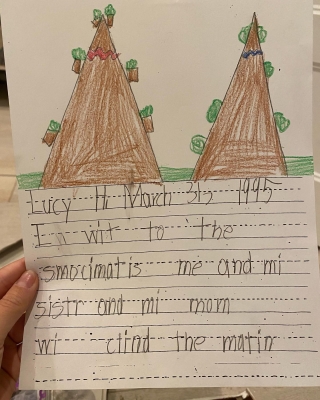 Lucy H March 31, 1995
I wit to the
smocimatis me and mi
sistr and mi mom
wi ctind the matin